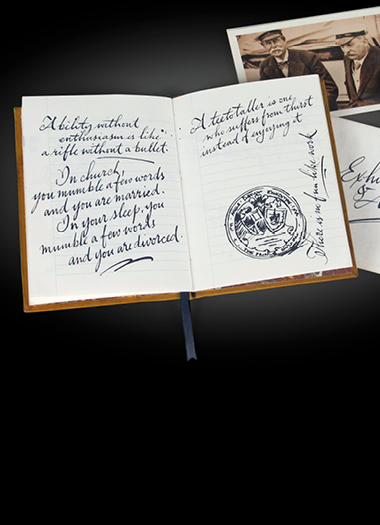 Ability without
enthusiasm is like
a rifle without a bullet.
In church,
you mumble a few words
and you are married.
In your sleep, you
mumble a few words
and you are divorced.
A teetotaller is one
who suffers from thirst
instead of enjoying it
There is no fun like work